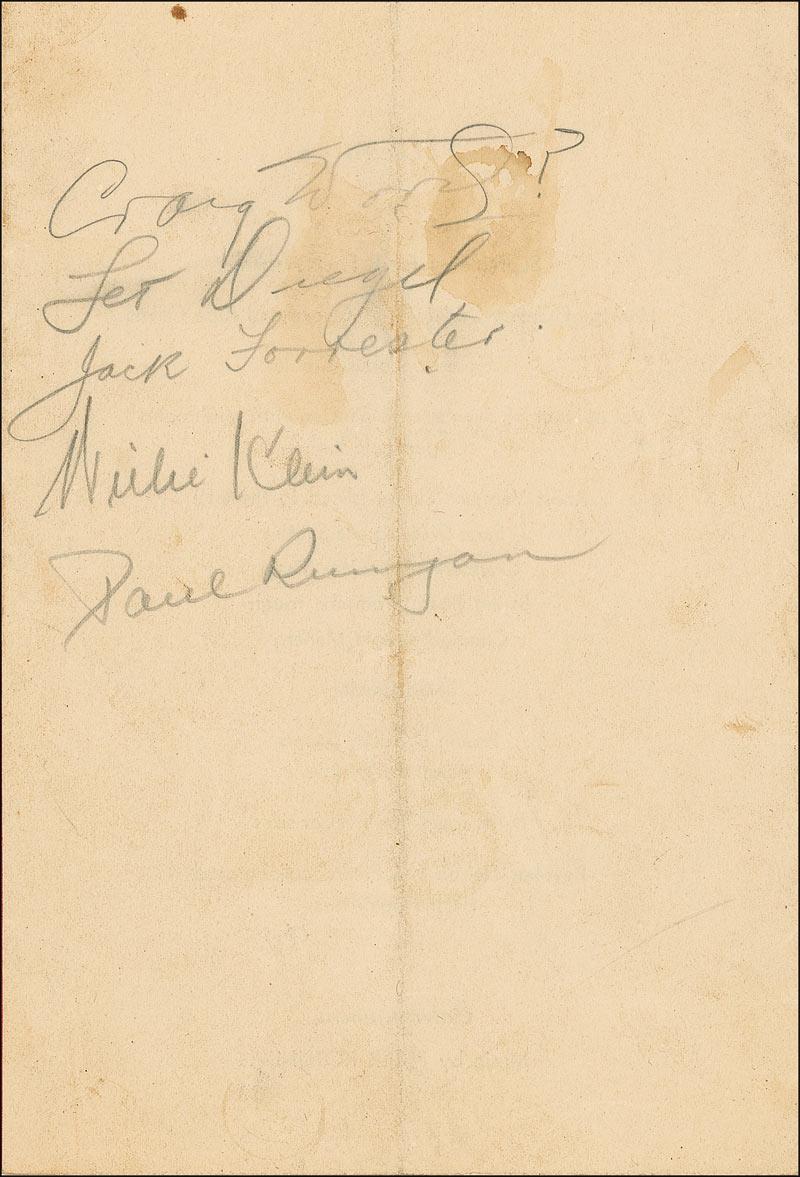 Craig Wood
Leo Diegel
Jack Forrester.
Willie Klein
Paul Runyan